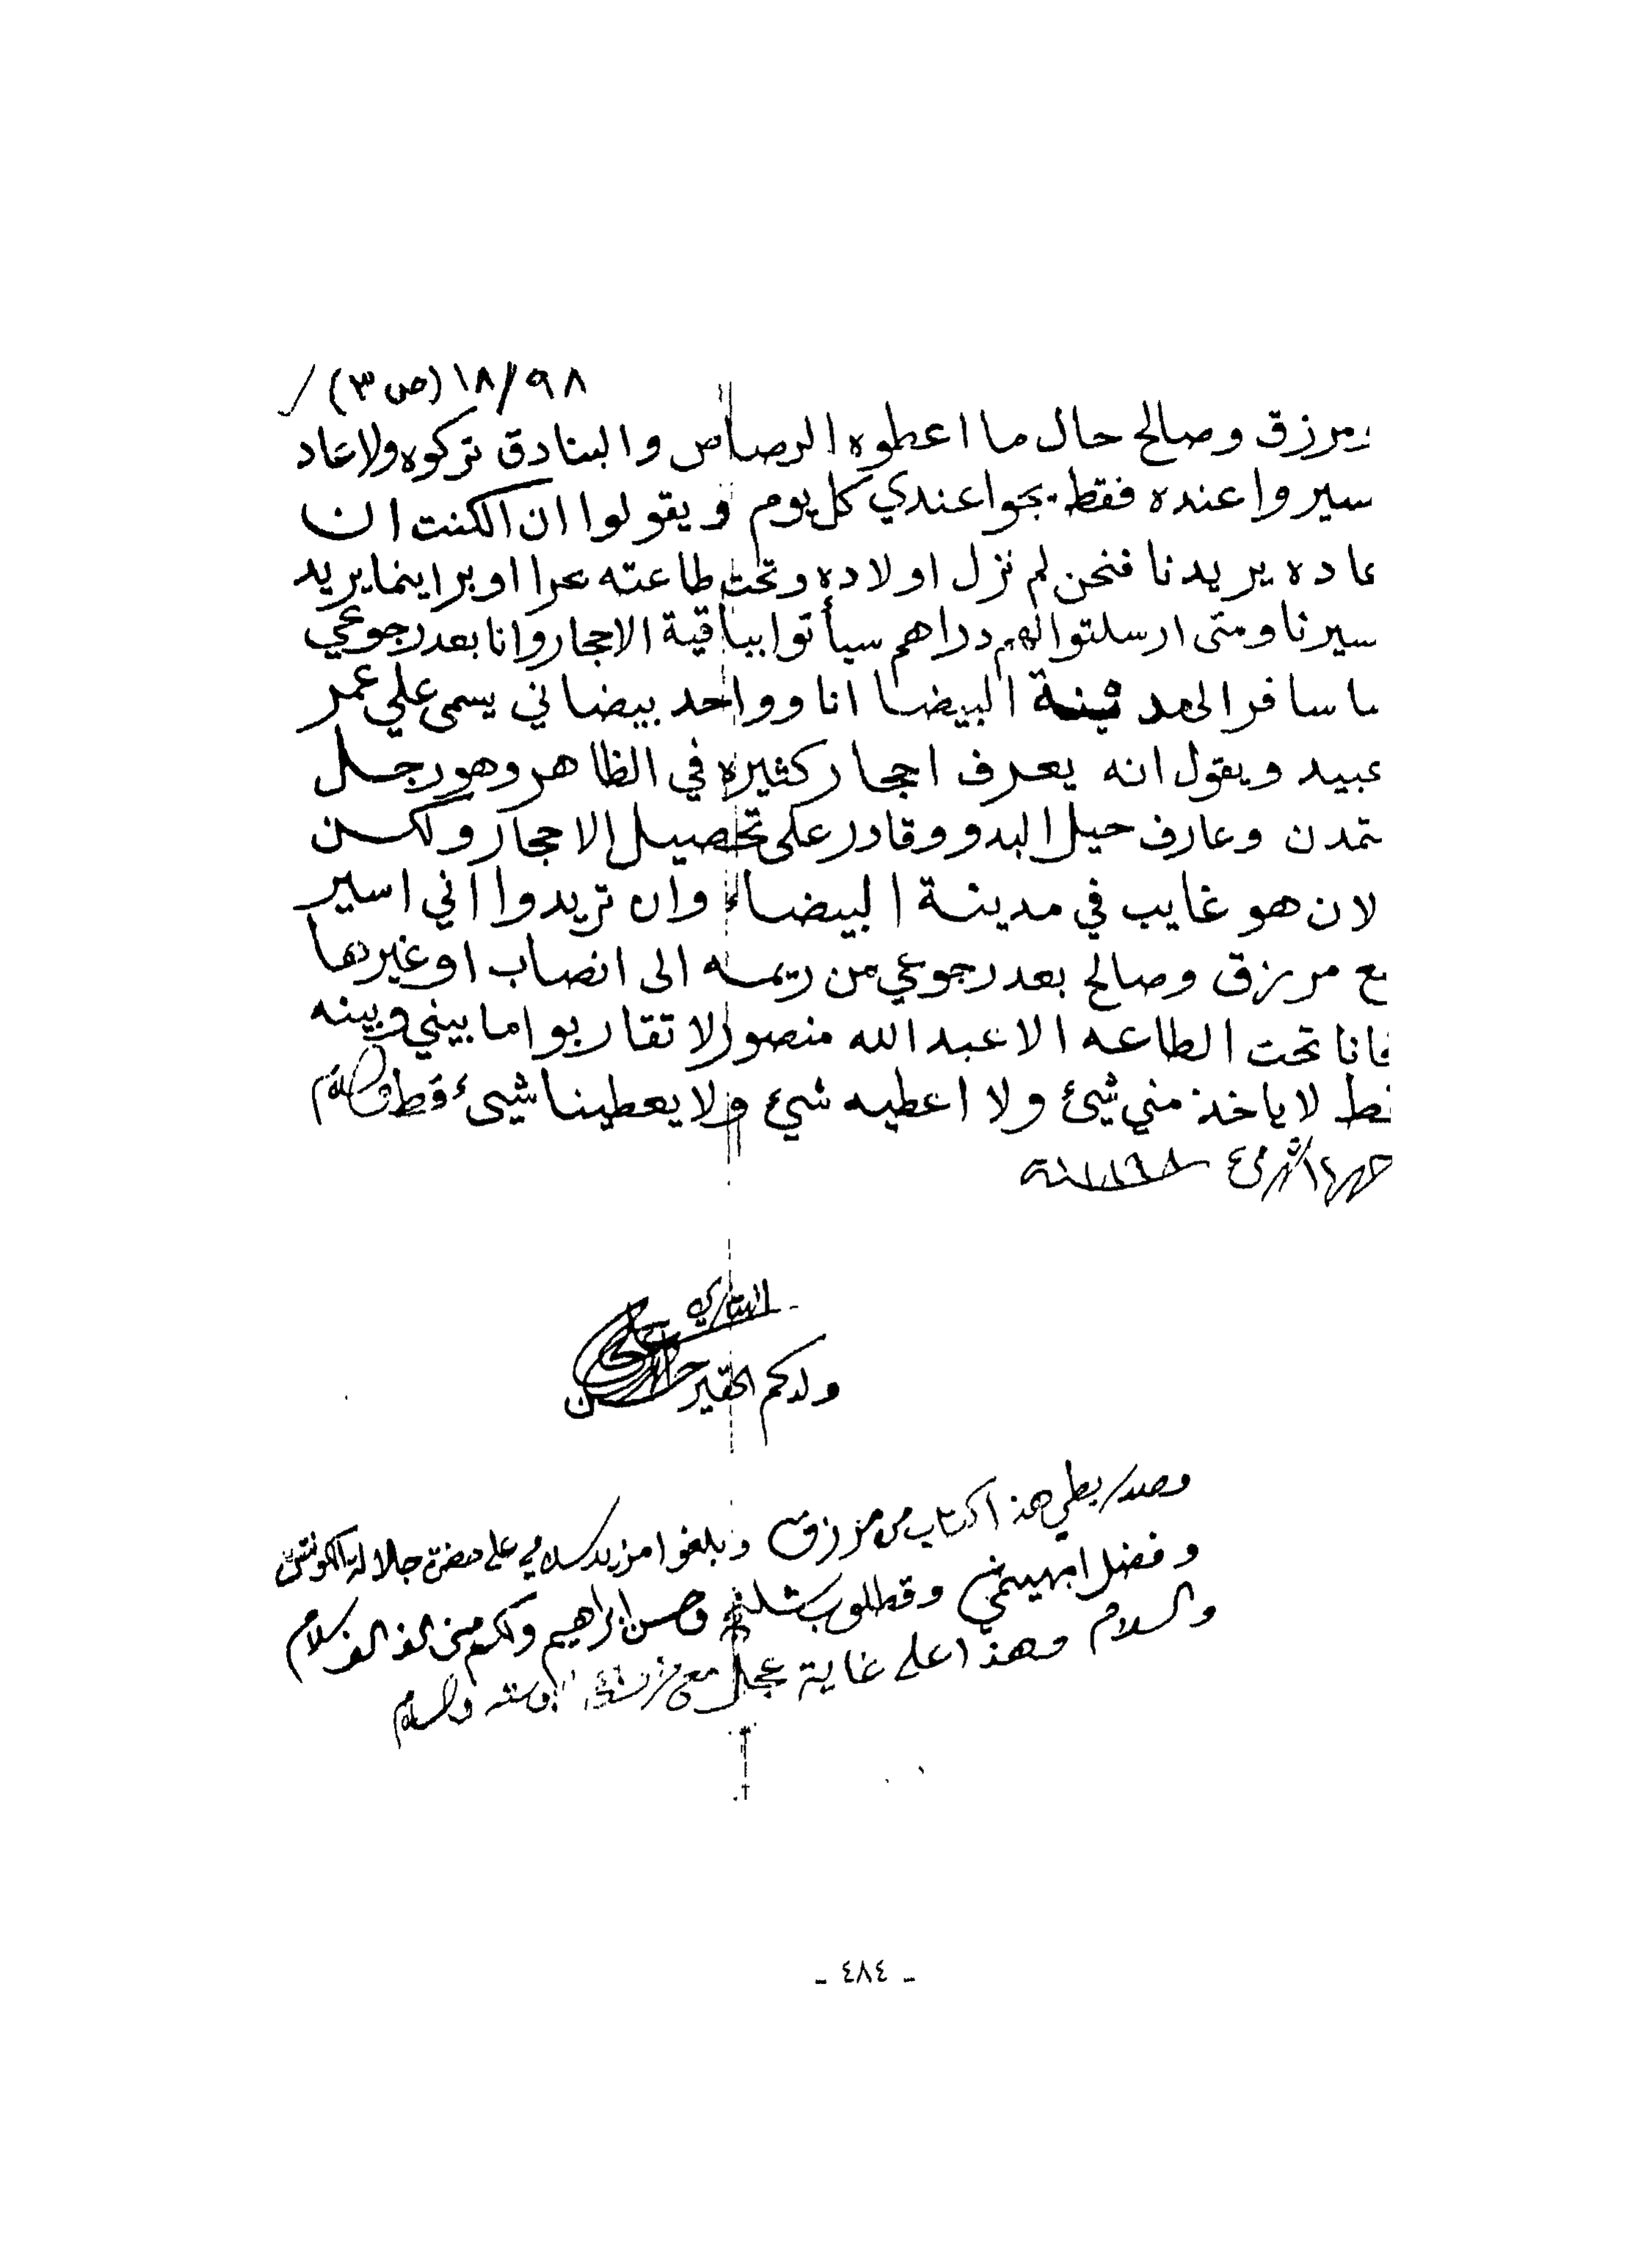 ١٨/٩٨ (ص ٣)
ومرزق وصالح حال ما اعطوه الرصاص والبنادق تركوه ولاعاد
سيروا عنده فقط يجوا عندي كل يوم ويقولوا ان الكنت ان
عاده يريدنا فنحن لم نزل اولاده وتحت طاعته بحرا او برا اينما يريد
سيرنا ومتى ارسلتوا لهم دراهم سيأتوا بباقية الاحجار وانا بعد رجوعي
سافر الى مدينة البيضا انا وواحد بيضاني يسمى علي عمر
عبيد ويقول انه يعرف احجار كثيره في الظاهر وهو رجل
تمدن وعارف حيل البدو وقادر على تحصيل الاحجار ولكن
لان هو غايب في مدينة البيضاء وان تريدوا اني اسير
مع مرزق وصالح بعد رجوعي من ريمه الى انصاب او غيرها
فانا تحت الطاعه الا عبدالله منصور لا تقاربوا ما بيني وبينه
قط لا ياخذ مني شيئ ولا اعطيه شيء ولا يعطينا شيىء قط والسلام
ولدكم الحقير
وصدر بطي هذا كتاب من مرزق وبلغوا مزيد سلامي على حضرة جلالة الكونتس
وفضل وقطلوب وحسن ابراهيم ولكم مني الف الف سلام
والسلام وهذا على غاية عجل والسلام
- ٤٨٤ -